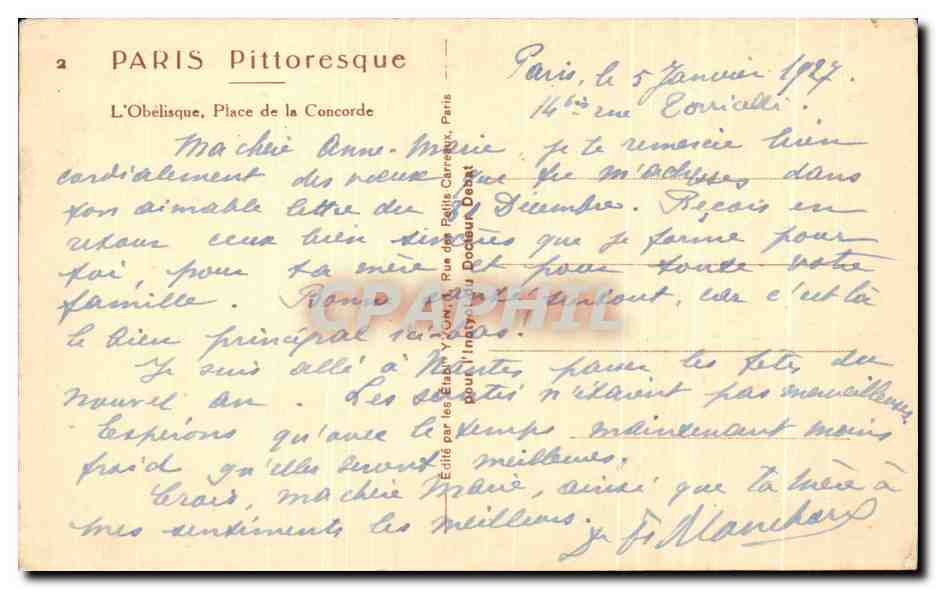 2 PARIS Pittoresque
L'Obélisque, Place de la Concorde
Paris, le 5 Janvier 1927.
14 bis rue Torricelli.
Ma chère Anne-Marie, je te remercie bien
cordialement des vœux que tu m'adresses dans
ton aimable lettre du 31 Décembre. Reçois en
retour ceux bien sincères que je forme pour
toi, pour ta mère et pour toute votre
famille. Bonne santé surtout, car c'est là
le bien principal ici-bas.
Je suis allé à Nantes passer les fêtes du
nouvel an. Les santés n'étaient pas merveilleuses.
Espérons qu'avec le temps maintenant moins
froid qu'elles seront meilleures.
Crois, ma chère Marie, ainsi que ta mère à
mes sentiments les meilleurs.
Edité par les Établ. YVON, Rue des Petits Carreaux, Paris
pour l'Inotyol du Docteur Debat
CPAPHIL